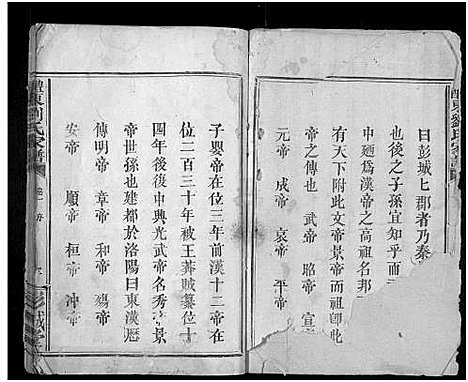 醴東劉氏家譜
曰彭城七郡者乃秦
此後之子孫宜知乎
中廼爲漢帝之高祖名邦
有天下附此文帝景帝而
帝之傳也 武帝 昭帝 宣
元帝 成帝 哀帝 平帝
子嬰帝在位三年前漢十二帝在
位二百三十年被王莽賊簒位十
四年後復中興光武帝名秀
帝世孫也建都於洛陽曰東漢歷
傳明帝 章帝 和帝 殤帝
安帝 順帝 桓帝 沖帝
醴東劉氏家譜
彭城堂